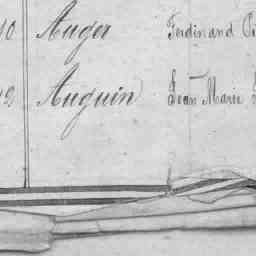 10 Auger Ferdinand
Auguin Jean Marie